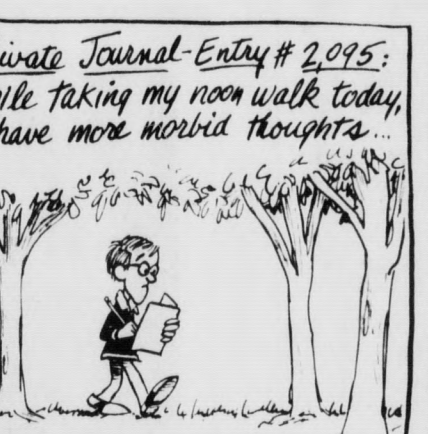 ivate Journal-Entry # 2,095:
ile taking my noon walk today,
have more morbid thoughts...